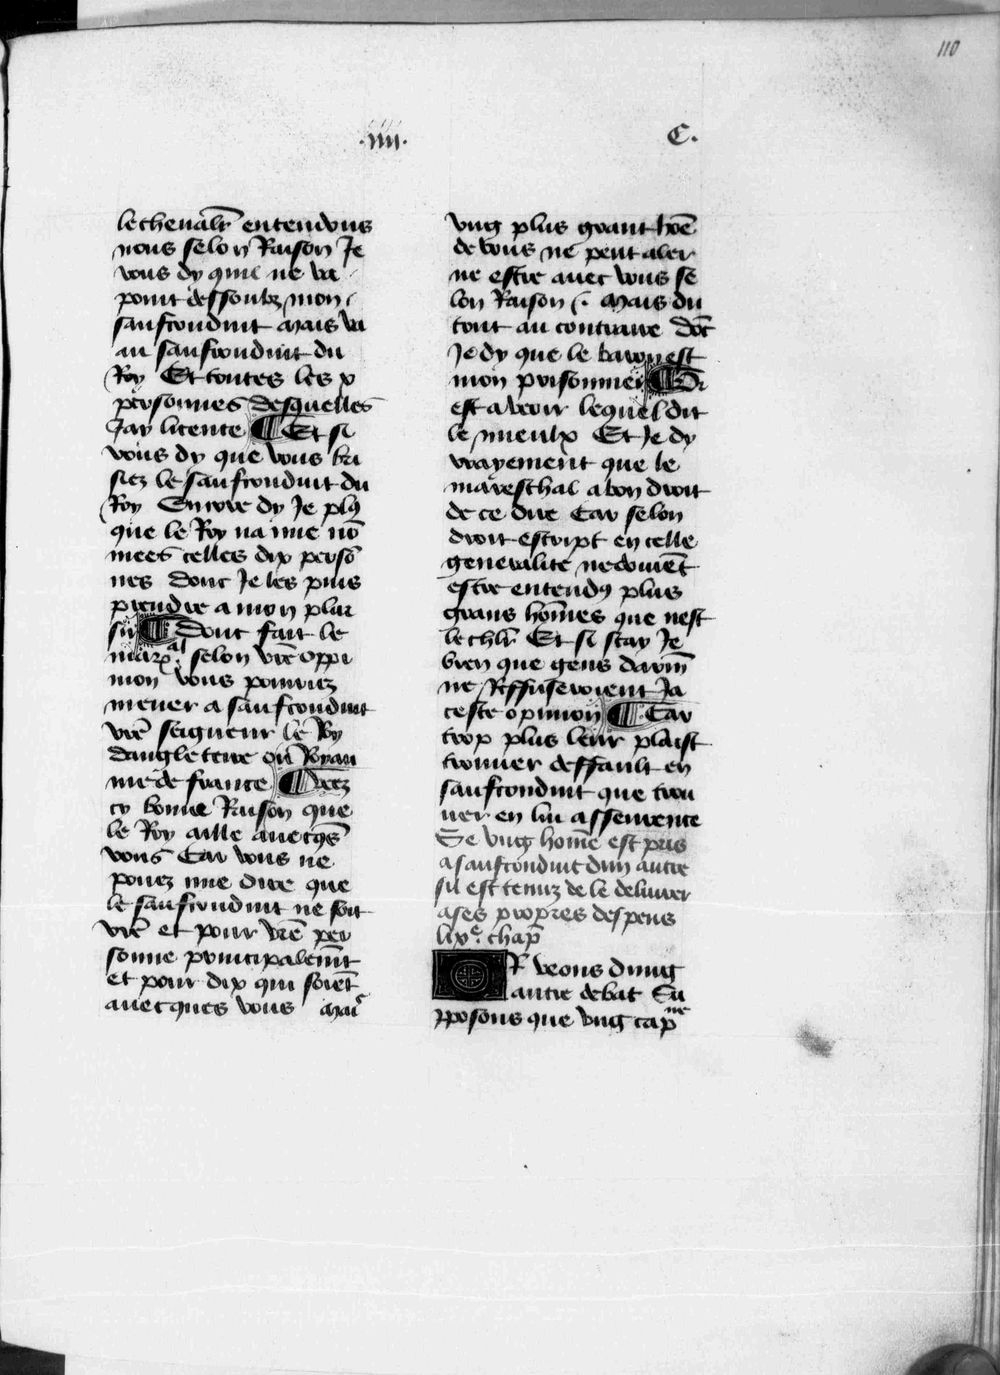 110
.iiii. C.
le chevalr̄ entendons
nous selon Raison Je
vous dy quil ne va
point dessoubz mon
saufconduit mais va
au saufconduit du
Roy Et toutes les x
personnes desquelles
Jay licence ¶ Et si
vous dy que vous bri
siez le saufconduit du
Roy Encore dy Je plꝰ
que le Roy na mie nō
mees celles dix persō
nes donc Je les puis
prendre a mon plai
sir ¶ dont fait le
mar̃al selon vr̄e oppi
nion vous pourriez
mener a saufconduit
vr̄e seigneur le Roy
dangleterre ou Royau
me de france ¶ Veez
cy bonne Raison que
le Roy aille avecq̄s
vous Car vous ne
povez mie dire que
le saufconduit ne soit
vr̄e et pour vr̄e per
sonne principalemn̄t
et pour dix qui soiēt
avecques vous mais
ung plus grant hōe
de vous ne peut aler
ne estre avec vous se
lon Raison mais du
tout au contraire dōc
Je dy que le baron est
mon prisonnier ¶ Or
est a veoir lequel dit
le mieulx Et Je dy
vrayement que le
mareschal a bon droit
de ce dire Car selon
droit escript en celle
generalite ne doivēt
estre entendꝰ plus
grans hōmes que nest
le chlr̄ Et si scay Je
bien que gens darm̄
ne Reffuseroient Ja
ceste opinion ¶ Car
trop plus leur plaist
trouver deffault en
saufconduit que trou
ver en lui asseurence
Se ung home est pris
a saufconduit dun autre
sil est tenuz de le delivrer
a ses propres despens
lixe. chap̄
OR veons dung
autre debat Su
pposons que ung capne